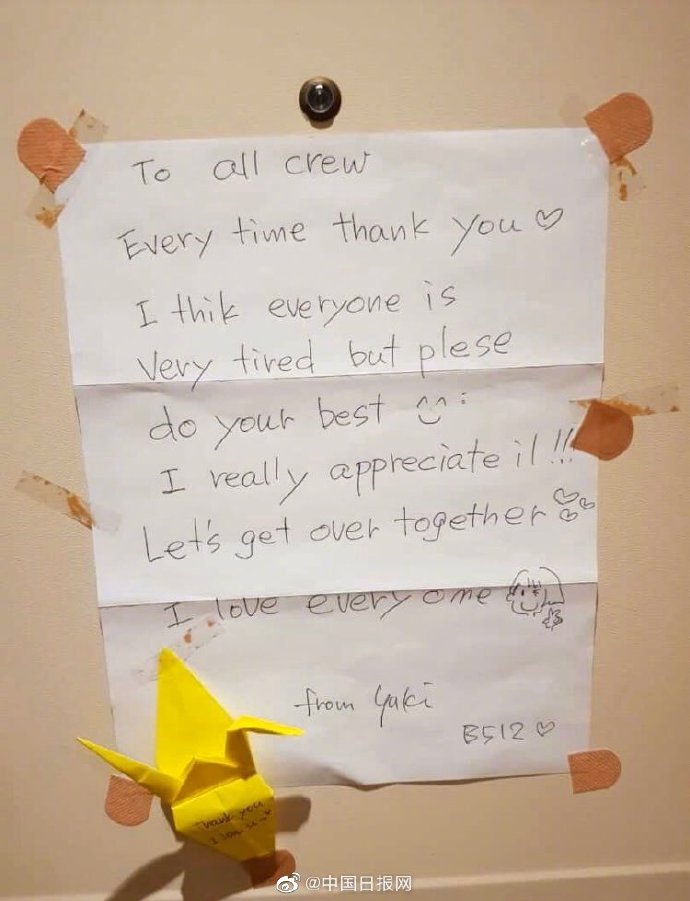 To all crew
Every time thank you ♡
I thik everyone is
Very tired but plese
do your best
I really appreciate it!!!
Let's get over together
I love everyone
from Yuki
B512 ♡
Thank you
@中国日报网